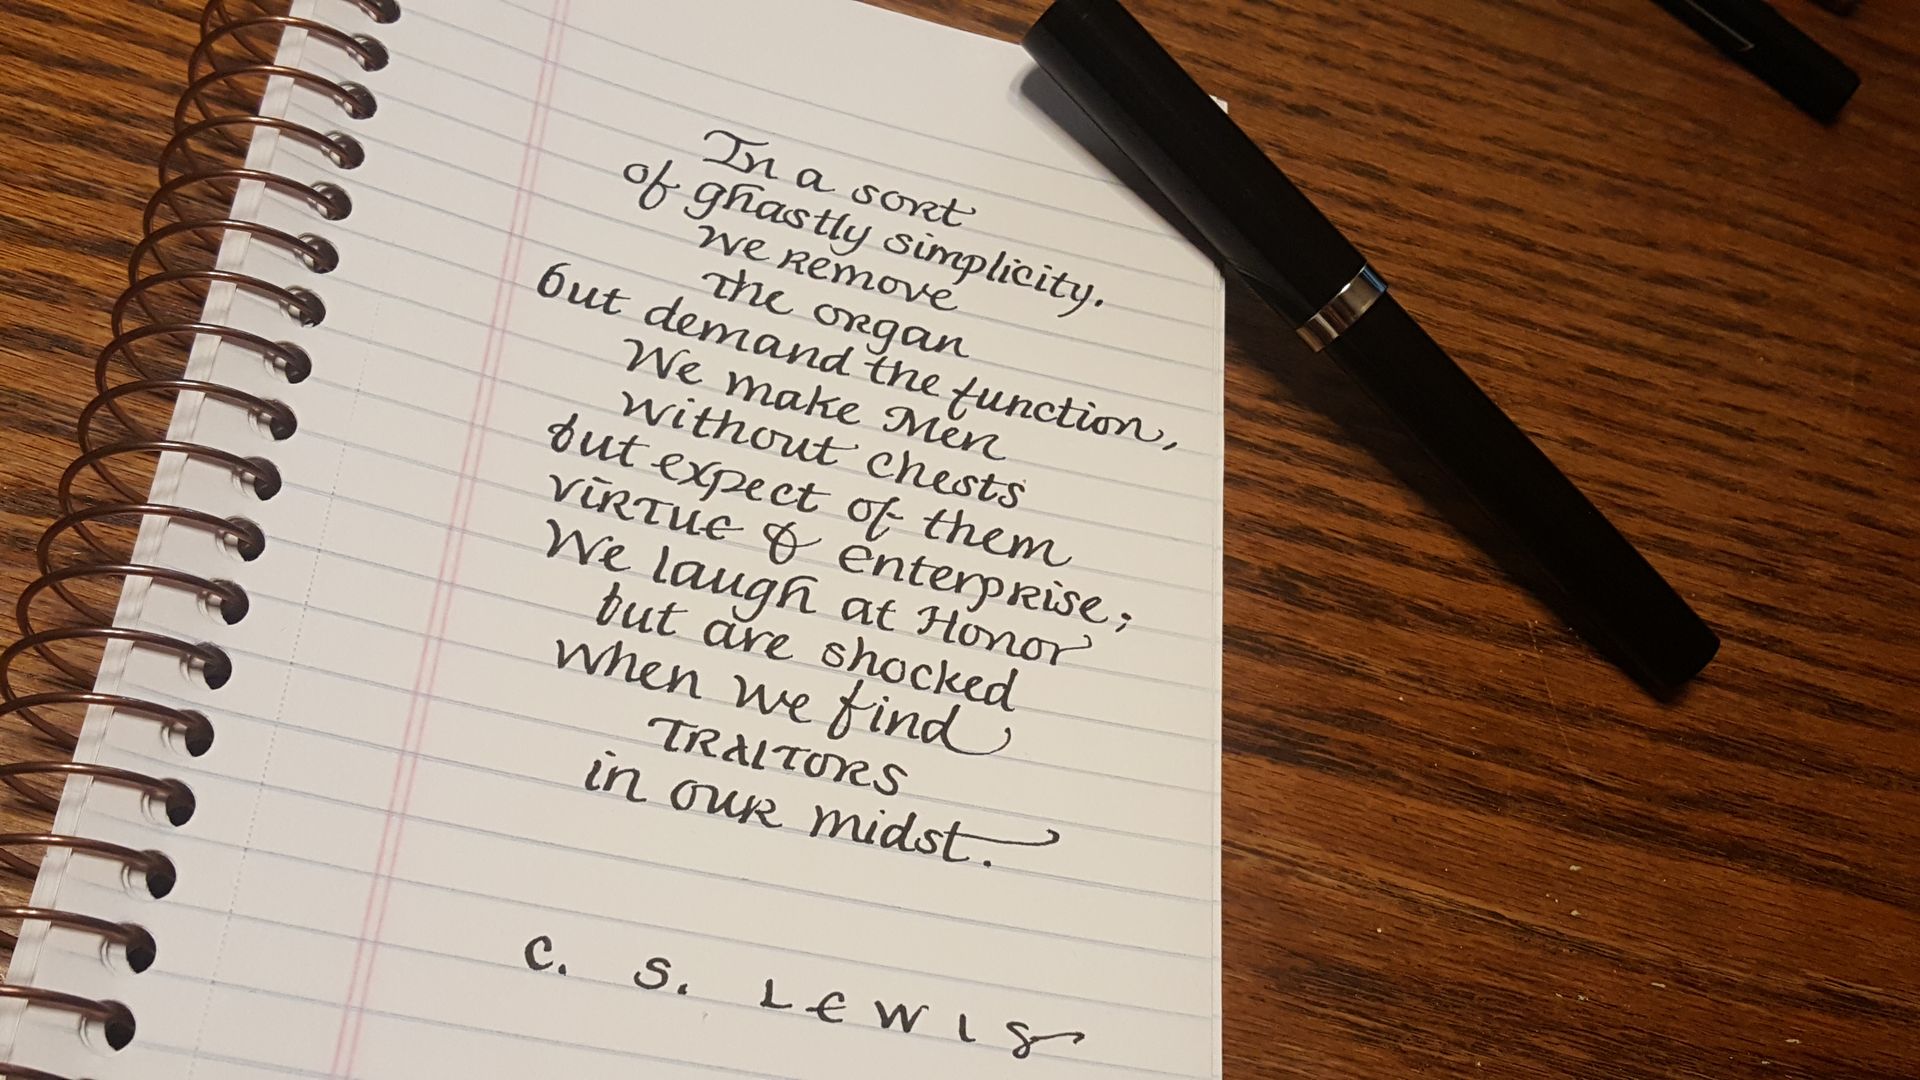 In a sort
of ghastly simplicity.
We remove
the organ
but demand the function,
We make Men
without chests
but expect of them
VIRTUE & Enterprise;
We laugh at Honor
but are shocked
when we find
TRAITORS
in our midst.
C. S. LEWIS